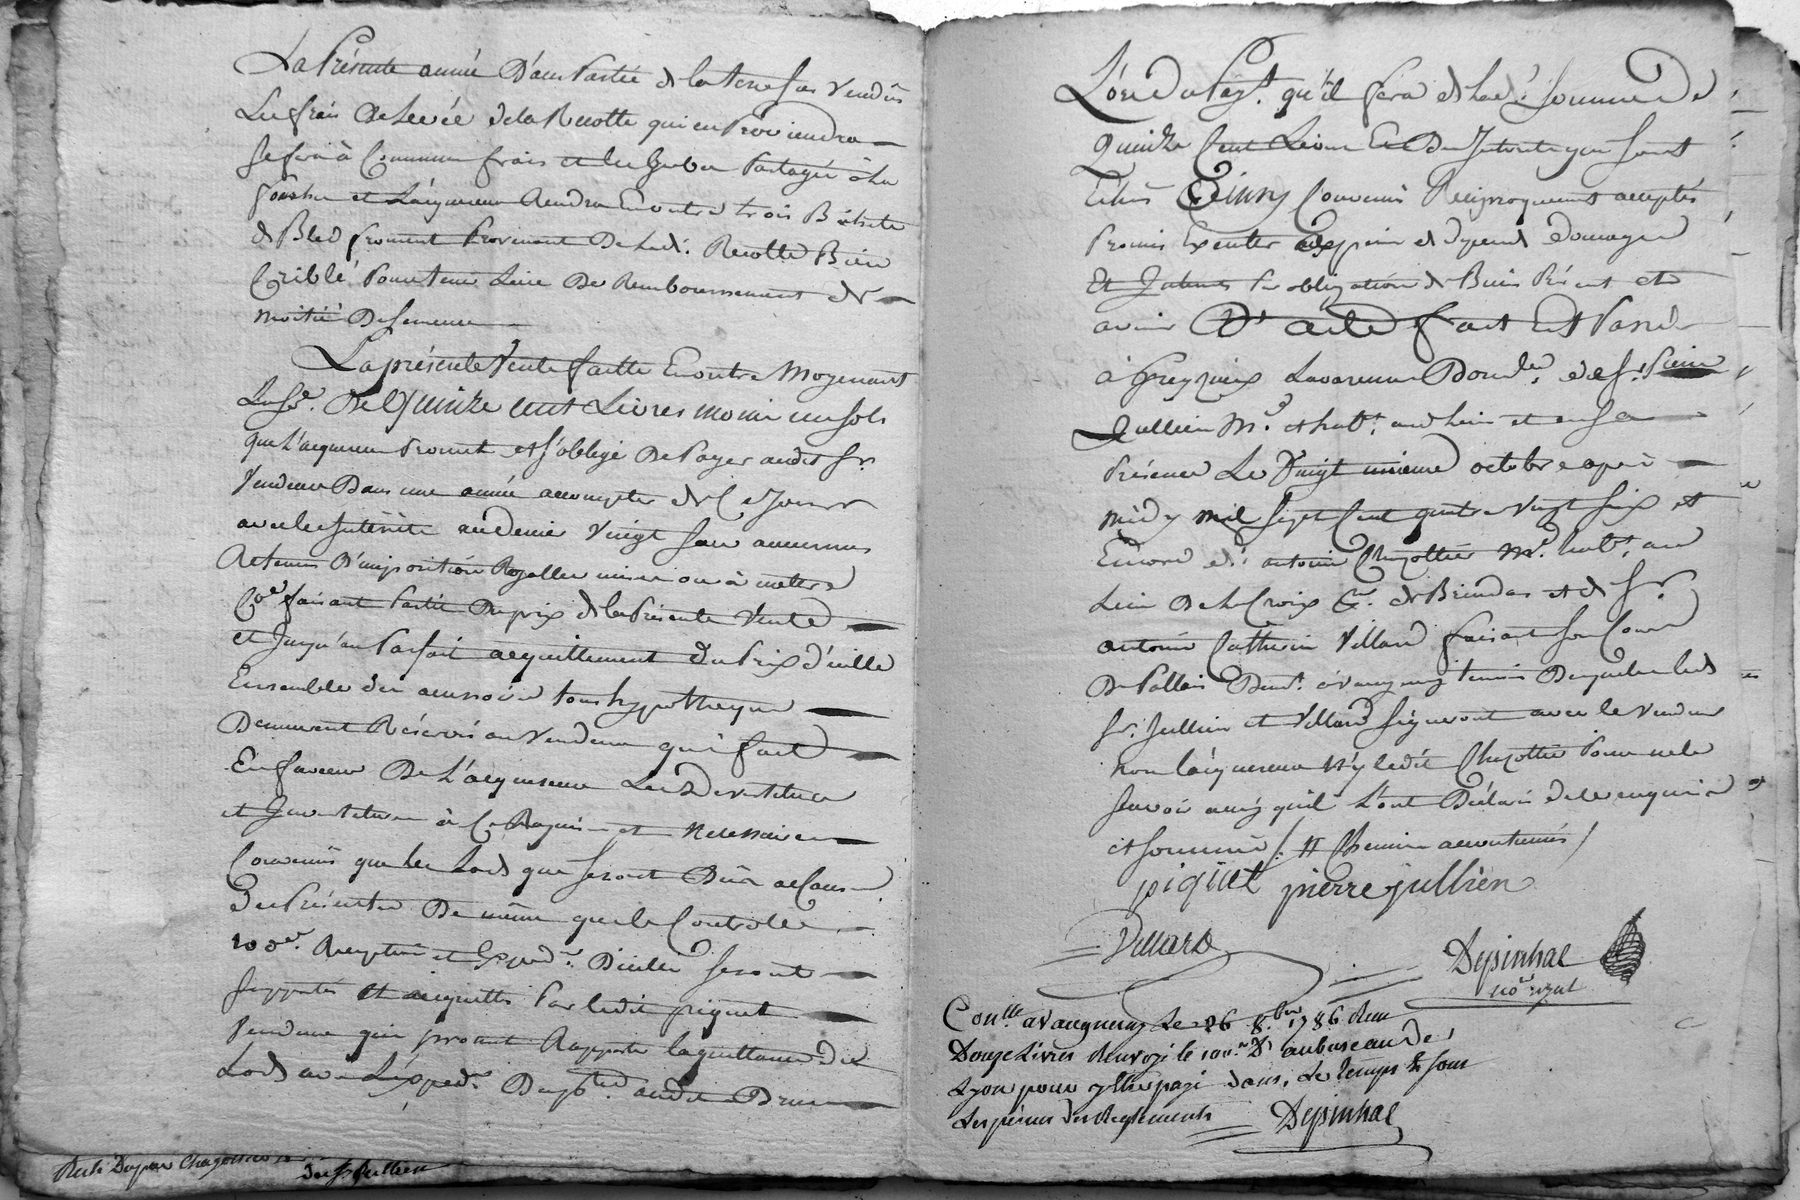 La Présente année D'une Partie de la terre sus Vendüe
Les frais de Levée de la Recolte qui en Proviendra
Se fera à Commun frais et les Gerbes Partagée à la
et L'aiquereur Rendra En outre trois Bichets
de Bled froment Provenant De Lad.e Recolte Bien
Criblé Pour tenir Lieu De Remboursement de
moitié De Semence
La présente Vente faitte En outre Moyenant
La So.e De Quinze cent Livres moins un sols
que L'acquereur Promet et s'oblige De Payer audit Sr.
Vendeur Dans une année acompter de Ce Jour
avec les Intérêts au denier Vingt sans aucunes
Retenües D'imposition Royalles mises ou à mettre
Co.e faisant Partie Du prix de la Présente Vente
et Jusqu'au Parfait acquittement Du Prix d'icelle
Ensemble des accessoires tous hypotheques
Demeurent Réservés au Vendeur qui fait
En faveur De L'acquereur Les Devestiture
et Investiture à Ce Requise et necessaires
Convenüs que les Lods que seront Düs acause
Des Présentes De même que le Controlle
100e. Reception et Exped.on D'icelles seront
Supportés et acquittés Par ledit piquet
Vendeur qui promet Rapporter la quittance des
Lods avec L'exped.on
Pierre Jullien
L'or Du Pay.t qu'il fera de lad.e somme de
Quinze Cent Livres Et Des Interets que seront
Echus Ainsy Convenüs Reciproquement acceptés
Promis Executer a peine de depens Domages
Et Interets Par obligation de Biens Présents et
avenir D.t acte fait Et Passé
à Greyzieux Lavarenne Dom.le de Sr. Pierre
Jullien M.d et habt. audit lieu et en sa
Présence Le Vingt unieme octobre après
midy mil sept Cent quatre Vingt Six et
Encore de antoine Chazottier M.d habt. au
Lieu De La Croix de Brindas et de Sr.
antoine Catherin Villard faisant son Cours
De Pallais Dem.t à Vaugneray temoins Desquels lesd
Sr. Jullien et Villard signeront avec le Vendeur
non l'aiquereur Ny ledit Chazottier Pour ne le
scavoir ainsy qu'il L'ont Déclaré de ce enquis
et sommé / # Chemin accoutumés /
piquet pierre jullien
Villard
Depinhac
no.re royal
Con.lle a Vaugneray Le 26 8.bre 1786 Reçu
Douze Livres Renvoyé le 100.e D. au bureau de
Lyon pour y Etre payé dans le temps & sous
Les peines des Reglements Depinhac